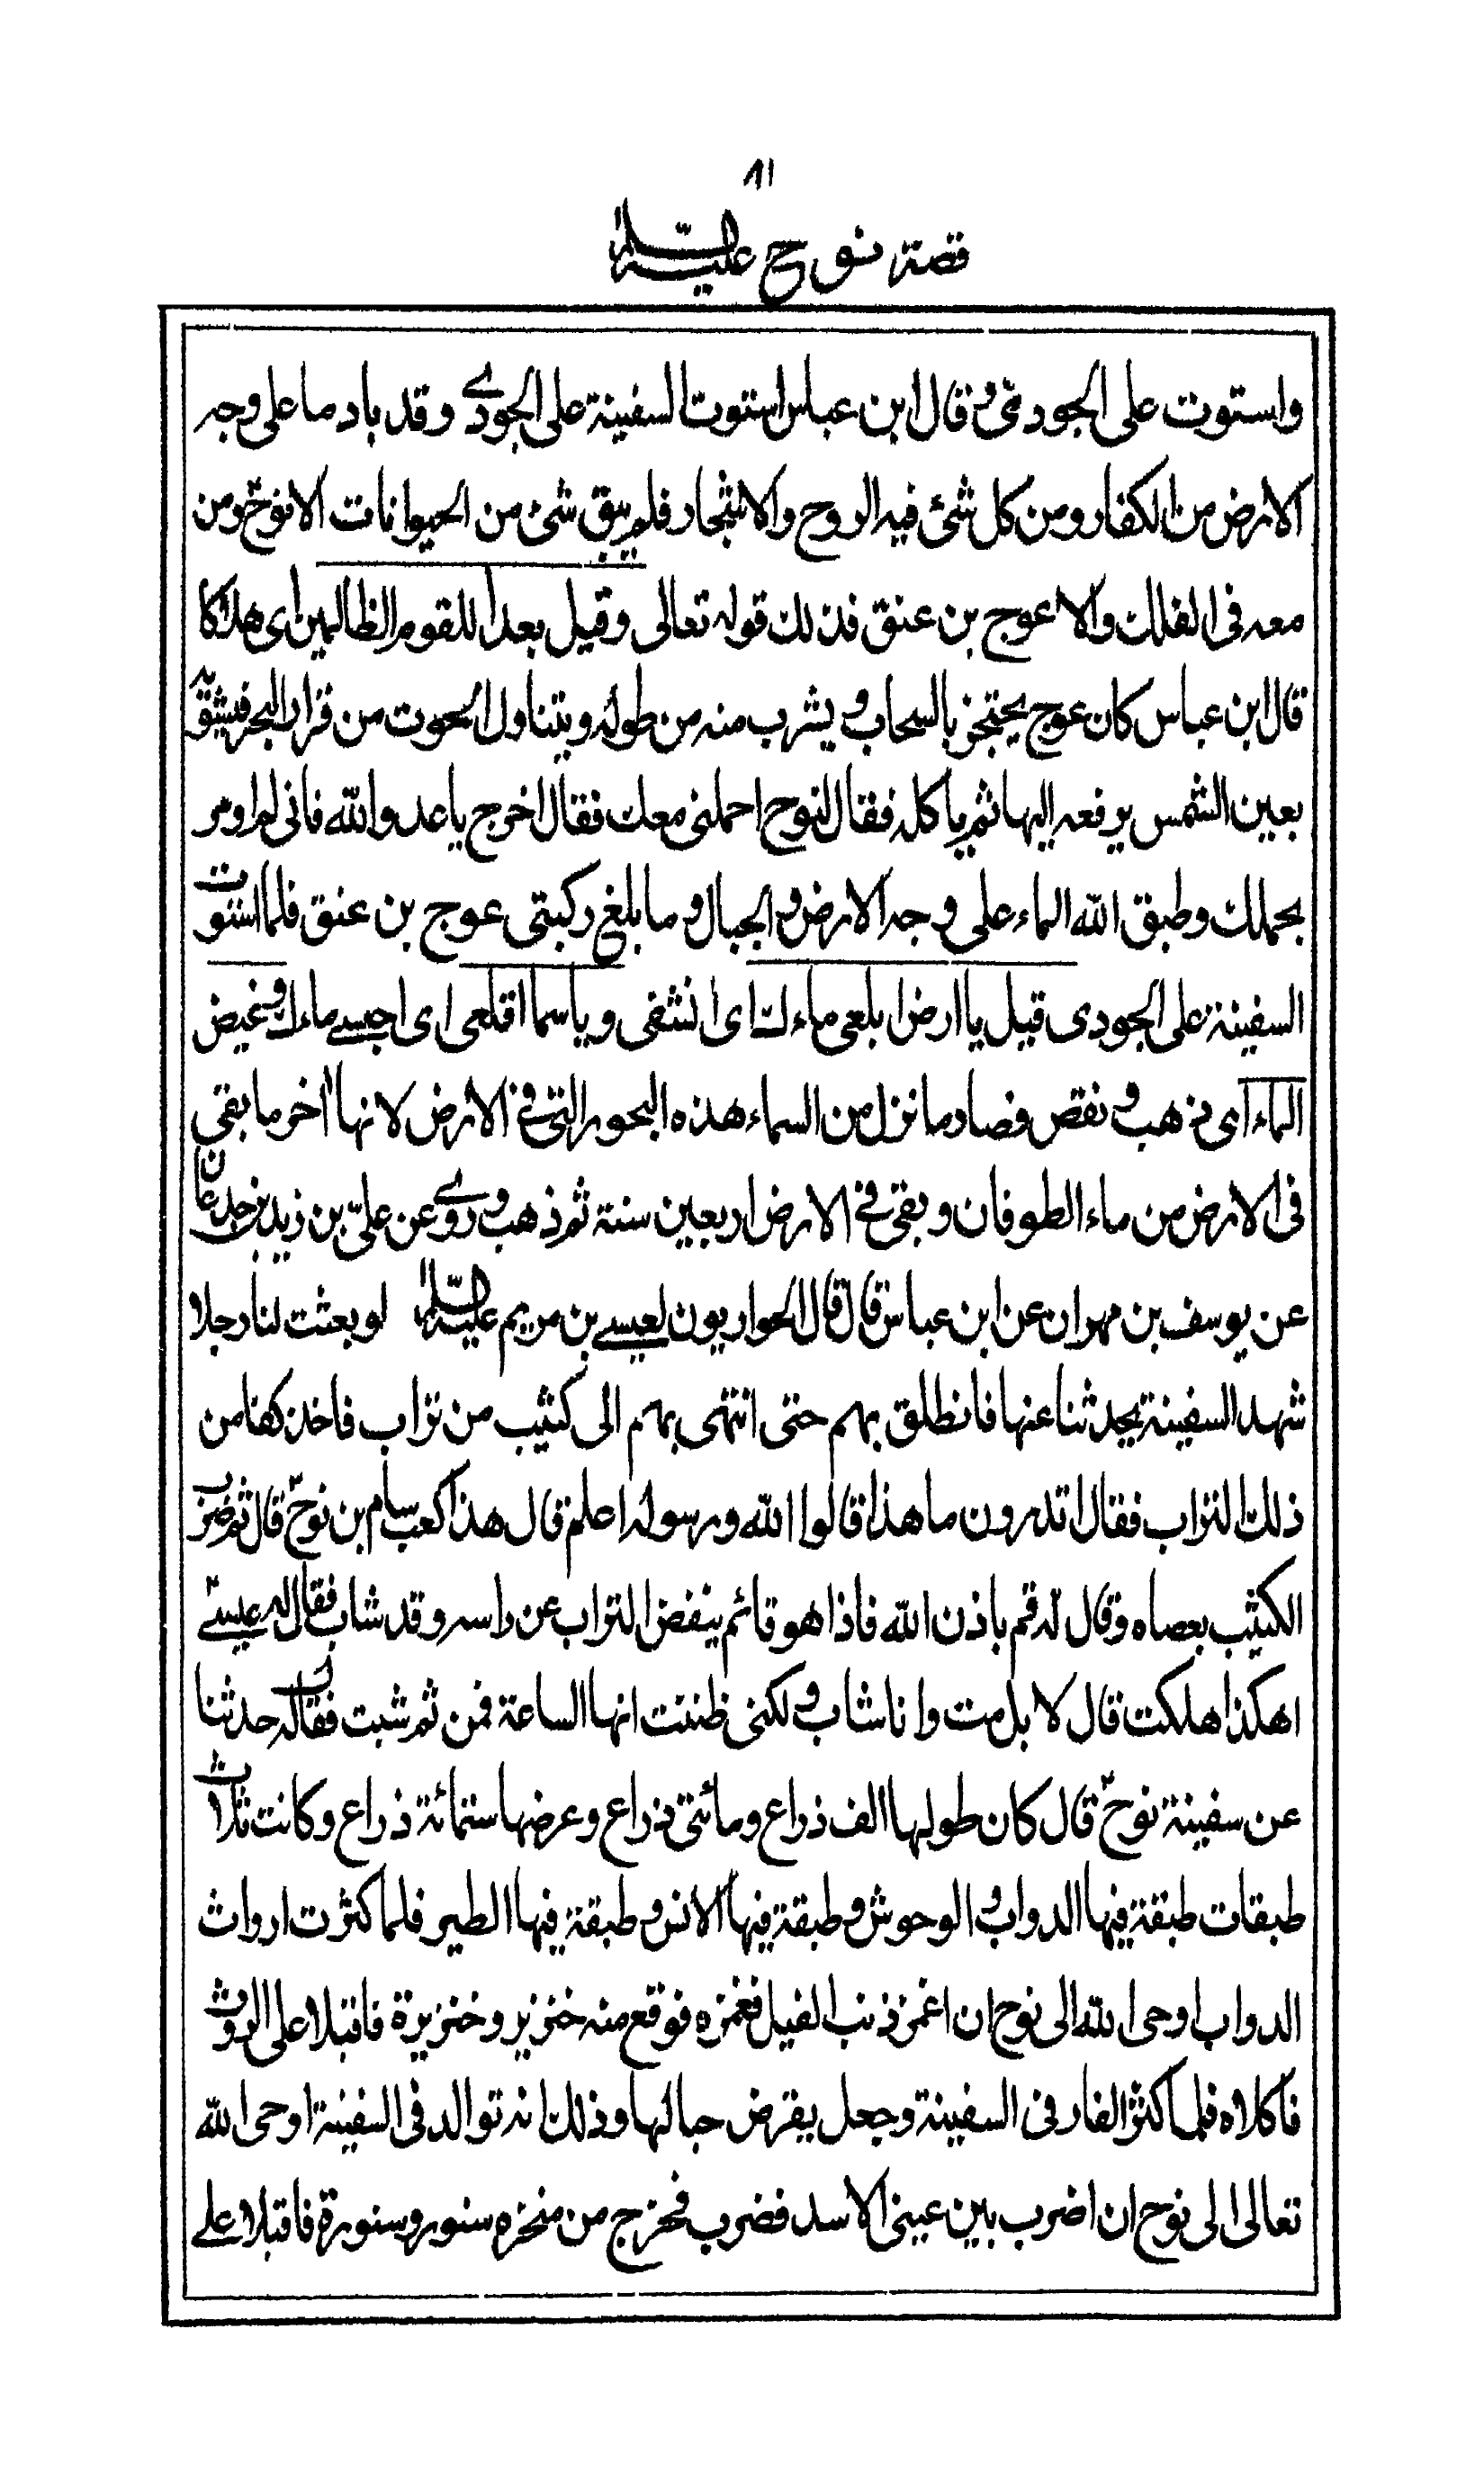 ٨١
قصة نوح عليه السلام
واستوت على الجودي وقال ابن عباس استوت السفينة على الجودے وقد باد ما على وجه
الارض من الكفار ومن كل شئ فيه الروح والاشجار فلم يبق شئ من الحيوانات الا نوحؑ ومن
معه فى الفلك والا عوج بن عنق فذلك قوله تعالى وقيل بعدا للقوم الظالمين اى هلاكا
قال ابن عباس كان عوج يحتجز بالسحاب ويشرب منه من طوله ويتناول الحوت من قرار البحر فيشويه
بعين الشمس يرفعه اليها ثم ياكله فقال لنوح احملنى معك فقال اخرج يا عدو الله فانى لم اومر
بحملك وطبق الله الماء على وجه الارض والجبال وما بلغ ركبتى عوج بن عنق فلما استوت
السفينة على الجودى قيل يا ارض ابلعى ماءك اى انشفى ويا سما اقلعى اى احبسے ماءك وغيض
الماء اى ذهب ونقص فصار ما نزل من السماء هذه البحور التى فى الارض لانها اخر ما بقى
فى الارض من ماء الطوفان وبقى فى الارض اربعين سنة ثم ذهب وروے عن علىّ بن زيد بن جدعان
عن يوسف بن مهران عن ابن عباس قال قال الحواريون لعيسے بن مريم عليه السلام لو بعثت لنا رجلا
شهد السفينة يحدثنا عنها فانطلق بهم حتى انتهى بهم الى كثيب من تراب فاخذ كفا من
ذلك التراب فقال اتدرون ما هذا قالوا الله ورسوله اعلم قال هذا كعب سام بن نوحؑ قال ثم ضرب
الكثيب بعصاه وقال له قم باذن الله فاذا هو قائم ينفض التراب عن راسه وقد شاب فقال له عيسےؑ
اهكذا هلكت قال لا بل مت وانا شاب ولكنى ظننت انها الساعة فمن ثم شبت فقال له حدثنا
عن سفينة نوحؑ قال كان طولها الف ذراع ومائتى ذراع وعرضها ستمائة ذراع وكانت ثلاث
طبقات طبقة فيها الدواب والوحوش وطبقة فيها الانس وطبقة فيها الطير فلما كثرت ارواث
الدواب اوحى الله الى نوح ان اغمز ذنب الفيل فغمزه فوقع منه خنزير وخنزيرة فاقبلا على الروث
فاكلاه فلما كثر الفار فى السفينة وجعل يقرض حبالها وذلك انه توالد فى السفينة اوحى الله
تعالى الى نوح ان اضرب بين عينى الاسد فضرب فخرج من منخره سنور وسنورة فاقبلا علے